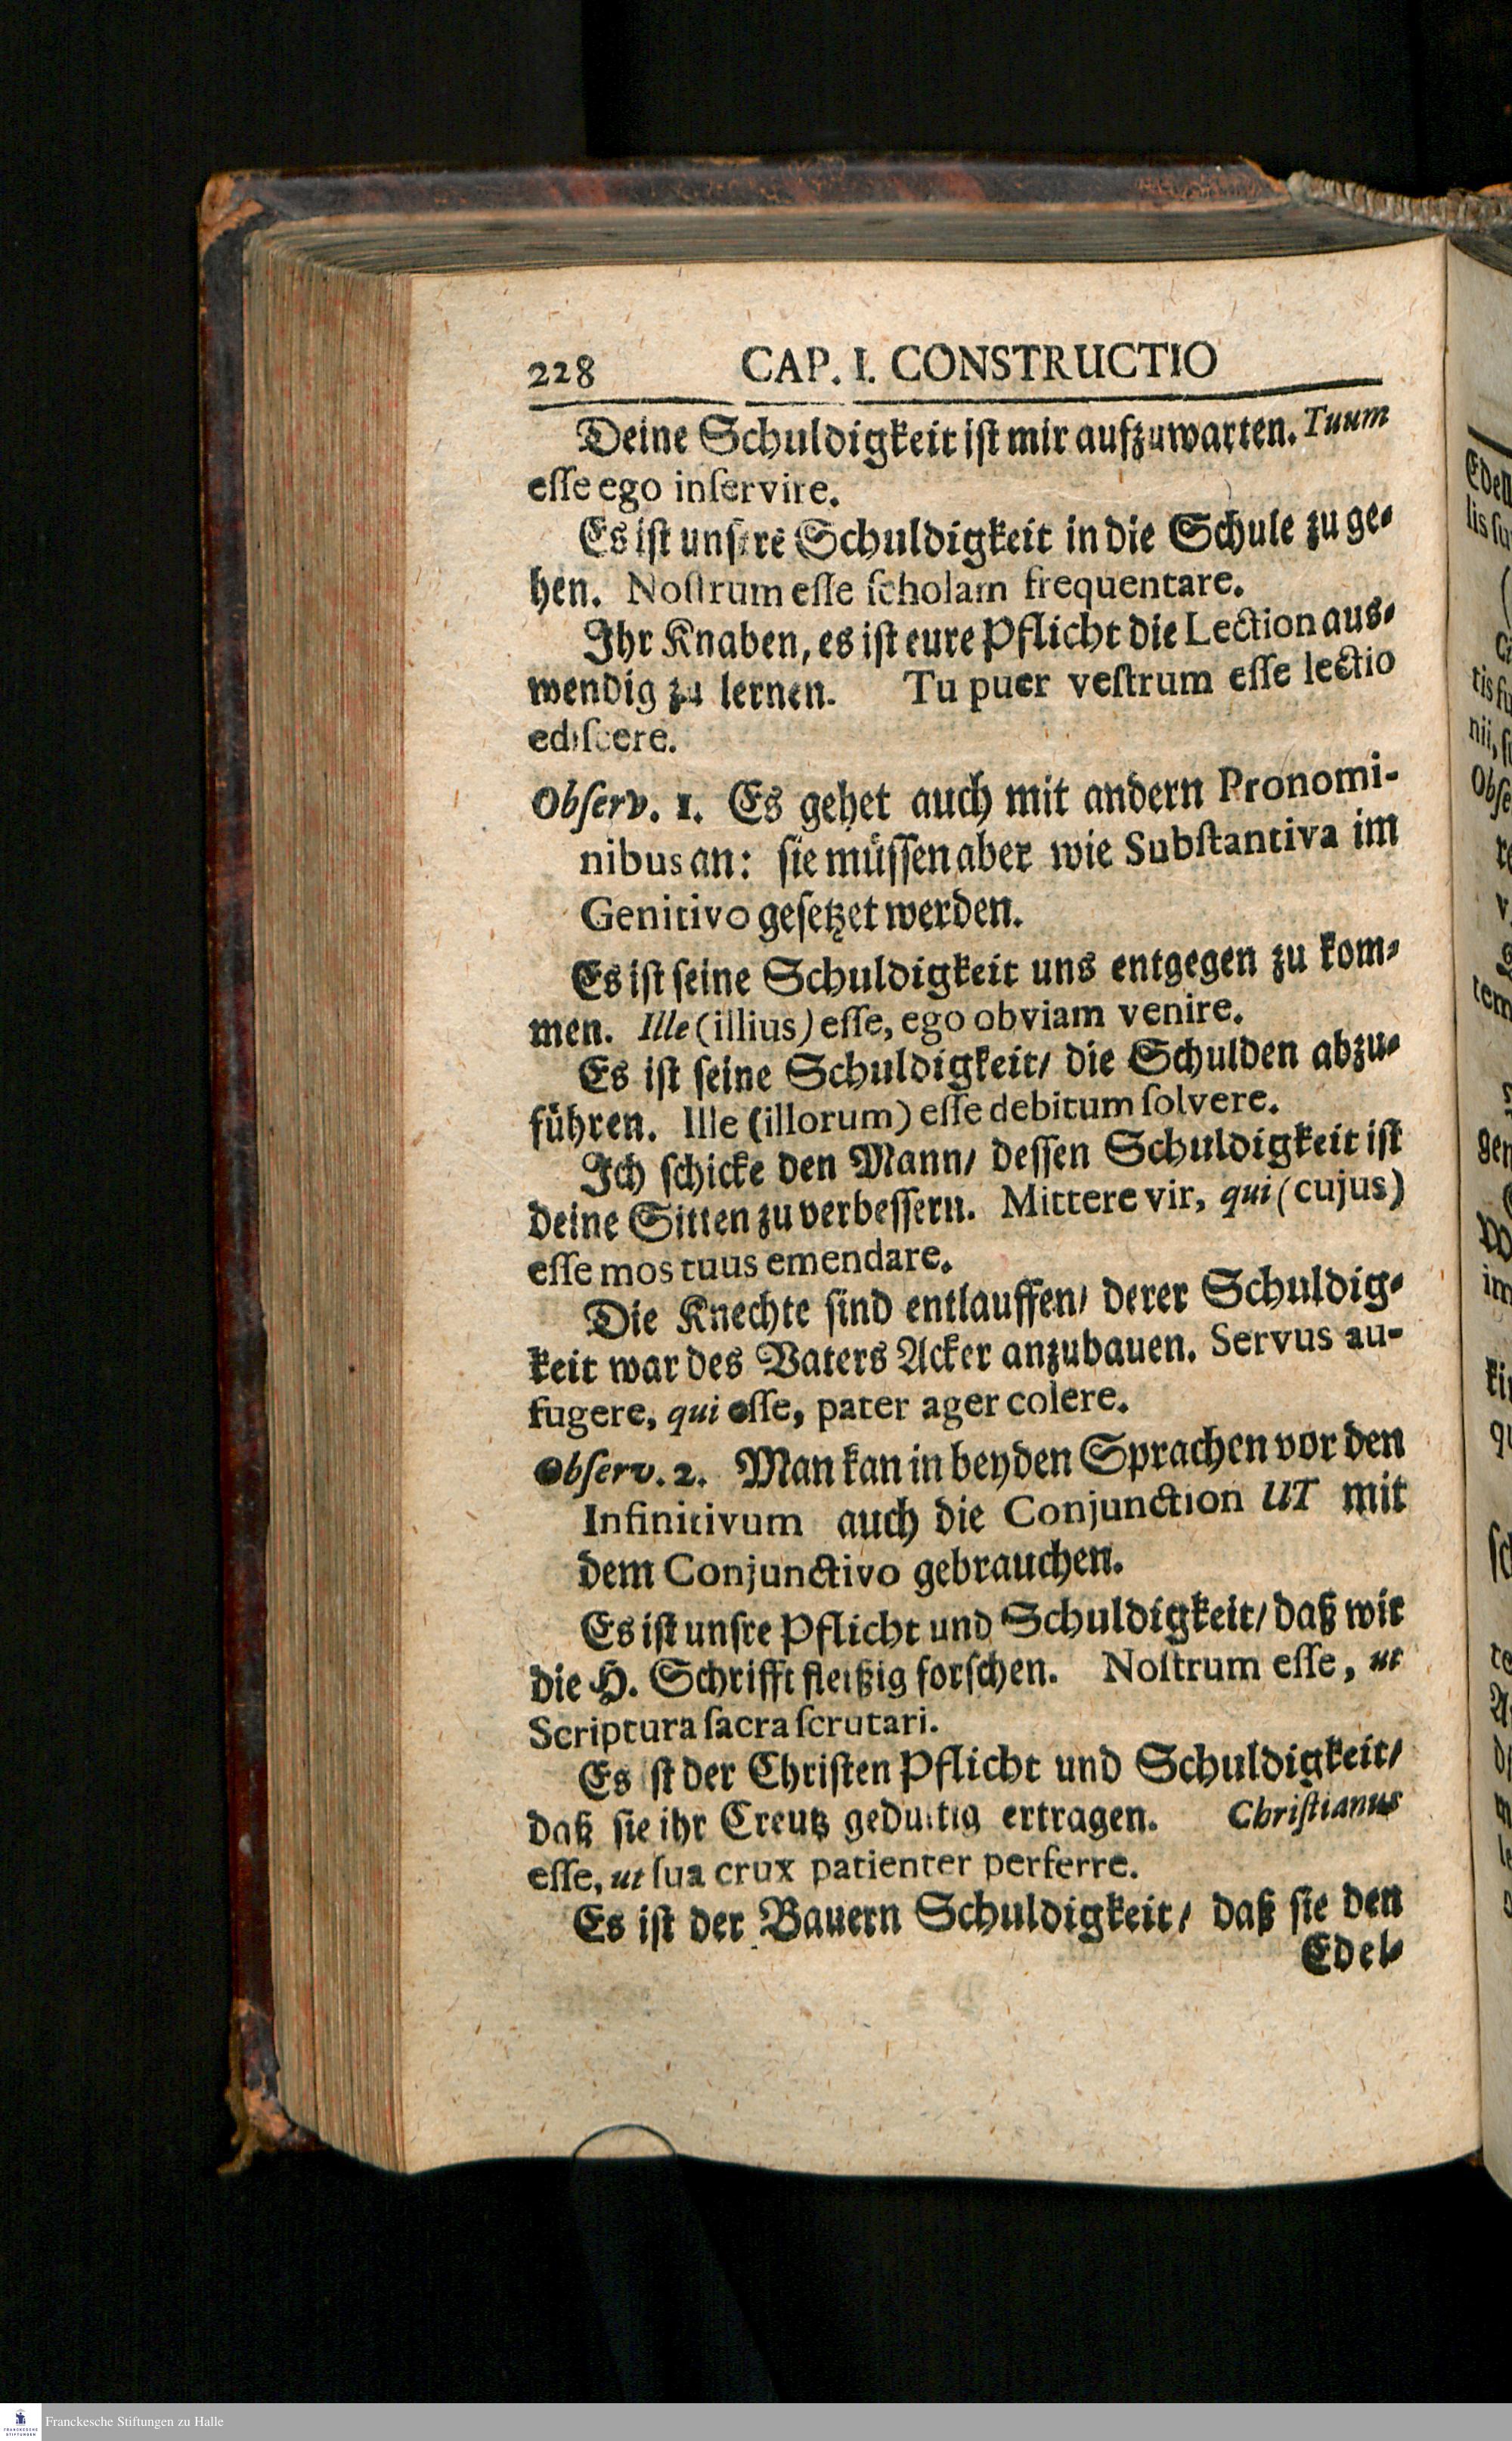 228 CAP. I. CONSTRUCTIO
Deine Schuldigkeit ist mir aufzuwarten. Tuum
esse ego inservire.
Es ist unsere Schuldigkeit in die Schule zu ge-
hen. Nostrum esse scholam frequentare.
Ihr Knaben, es ist eure Pflicht die Lection aus-
wendig zu lernen. Tu puer vestrum esse lectio
ediscere.
Observ. 1. Es gehet auch mit andern Pronomi-
nibus an: sie müssen aber wie Substantiva im
Genitivo gesetzet werden.
Es ist seine Schuldigkeit uns entgegen zu kom-
men. Ille (illius) esse, ego obviam venire.
Es ist seine Schuldigkeit/ die Schulden abzu-
führen. Ille (illorum) esse debitum solvere.
Ich schicke den Mann/ dessen Schuldigkeit ist
deine Sitten zu verbessern. Mittere vir, qui (cujus)
esse mos tuus emendare.
Die Knechte sind entlauffen/ derer Schuldig-
keit war des Vaters Acker anzubauen. Servus au-
fugere, qui esse, pater ager colere.
Observ. 2. Man kan in beyden Sprachen vor den
Infinitivum auch die Conjunction UT mit
dem Conjunctivo gebrauchen.
Es ist unsre Pflicht und Schuldigkeit/ daß wir
die H. Schrifft fleißig forschen. Nostrum esse, ut
Scriptura sacra scrutari.
Es ist der Christen Pflicht und Schuldigkeit/
daß sie ihr Creutz gedultig ertragen. Christianus
esse, ut sua crux patienter perferre.
Es ist der Bauern Schuldigkeit/ daß sie den
Edel-
Edel
lis
tis
nii,
Obse
tem
gen
im
Franckesche Stiftungen zu Halle